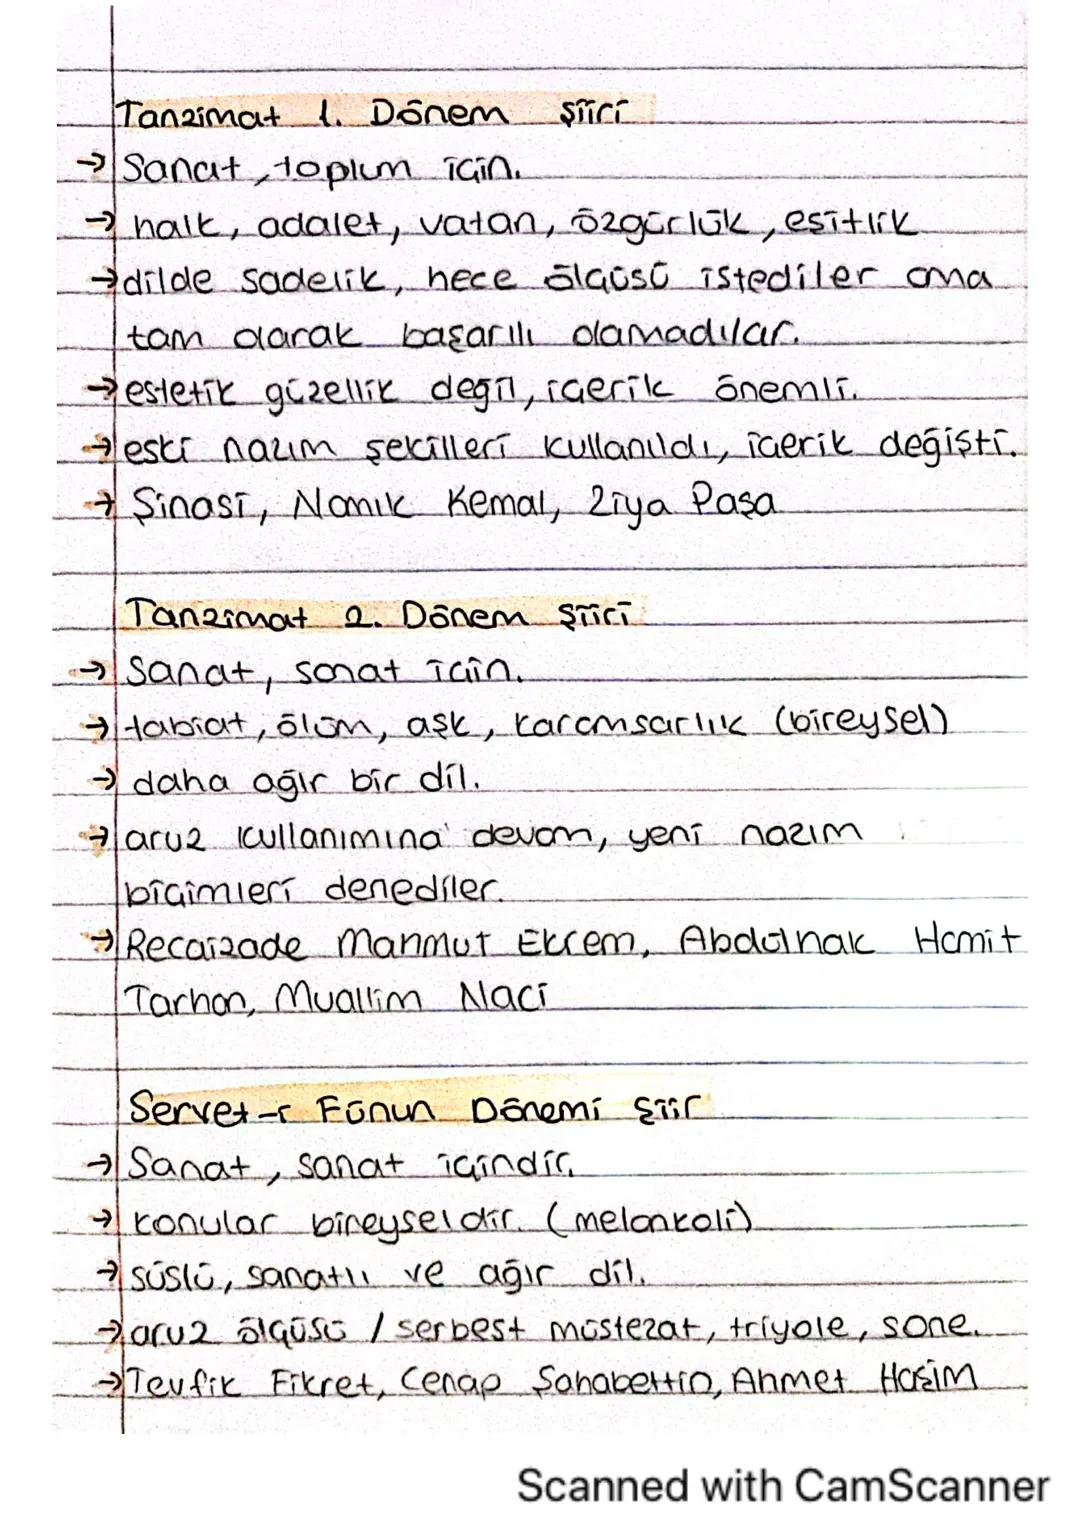 Tanzimat 1. Dönem Şiiri
→ Sanat, toplum için.
→ halk, adalet, vatan, özgürlük, eşitlik
→ dilde sadelik, hece ölçüsü istediler ama
tam olarak başarılı olamadılar.
→ estetik güzellik değil, içerik önemli.
→ eski nazım şekilleri kullanıldı, içerik değişti.
→ Şinasi, Namık Kemal, Ziya Paşa
Tanzimat 2. Dönem Şiiri
→ Sanat, sanat için.
→ tabiat, ölüm, aşk, karamsarlık (bireysel)
→ daha ağır bir dil.
→ aruz kullanımına devam, yeni nazım
biçimleri denediler.
→ Recaizade Mahmut Ekrem, Abdülhak Hamit
Tarhan, Muallim Naci
Servet-i Fünun Dönemi Şiir
→ Sanat, sanat içindir.
→ konular bireyseldir. (melankoli)
→ süslü, sanatlı ve ağır dil.
→ aruz ölçüsü / serbest müstezat, triyole, sone.
→ Tevfik Fikret, Cenap Şahabettin, Ahmet Haşim
Scanned with CamScanner